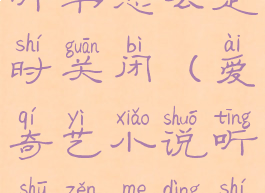 听书怎么定
shí guān bì ài
时关闭（爱
qí yì xiǎo shuō tīng
奇艺小说听
shū zěn me dìng shí